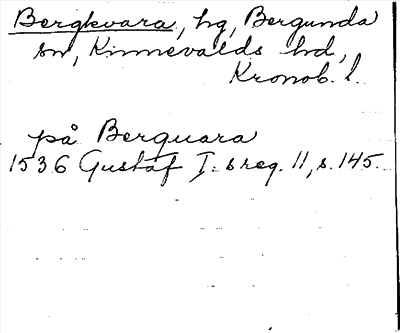 Bergkvara, hg, Bergunda
sn, Kinnevalds hd,
Kronob. l.
på Berquara
1536 Gustaf I. s reg. 11, s. 145.